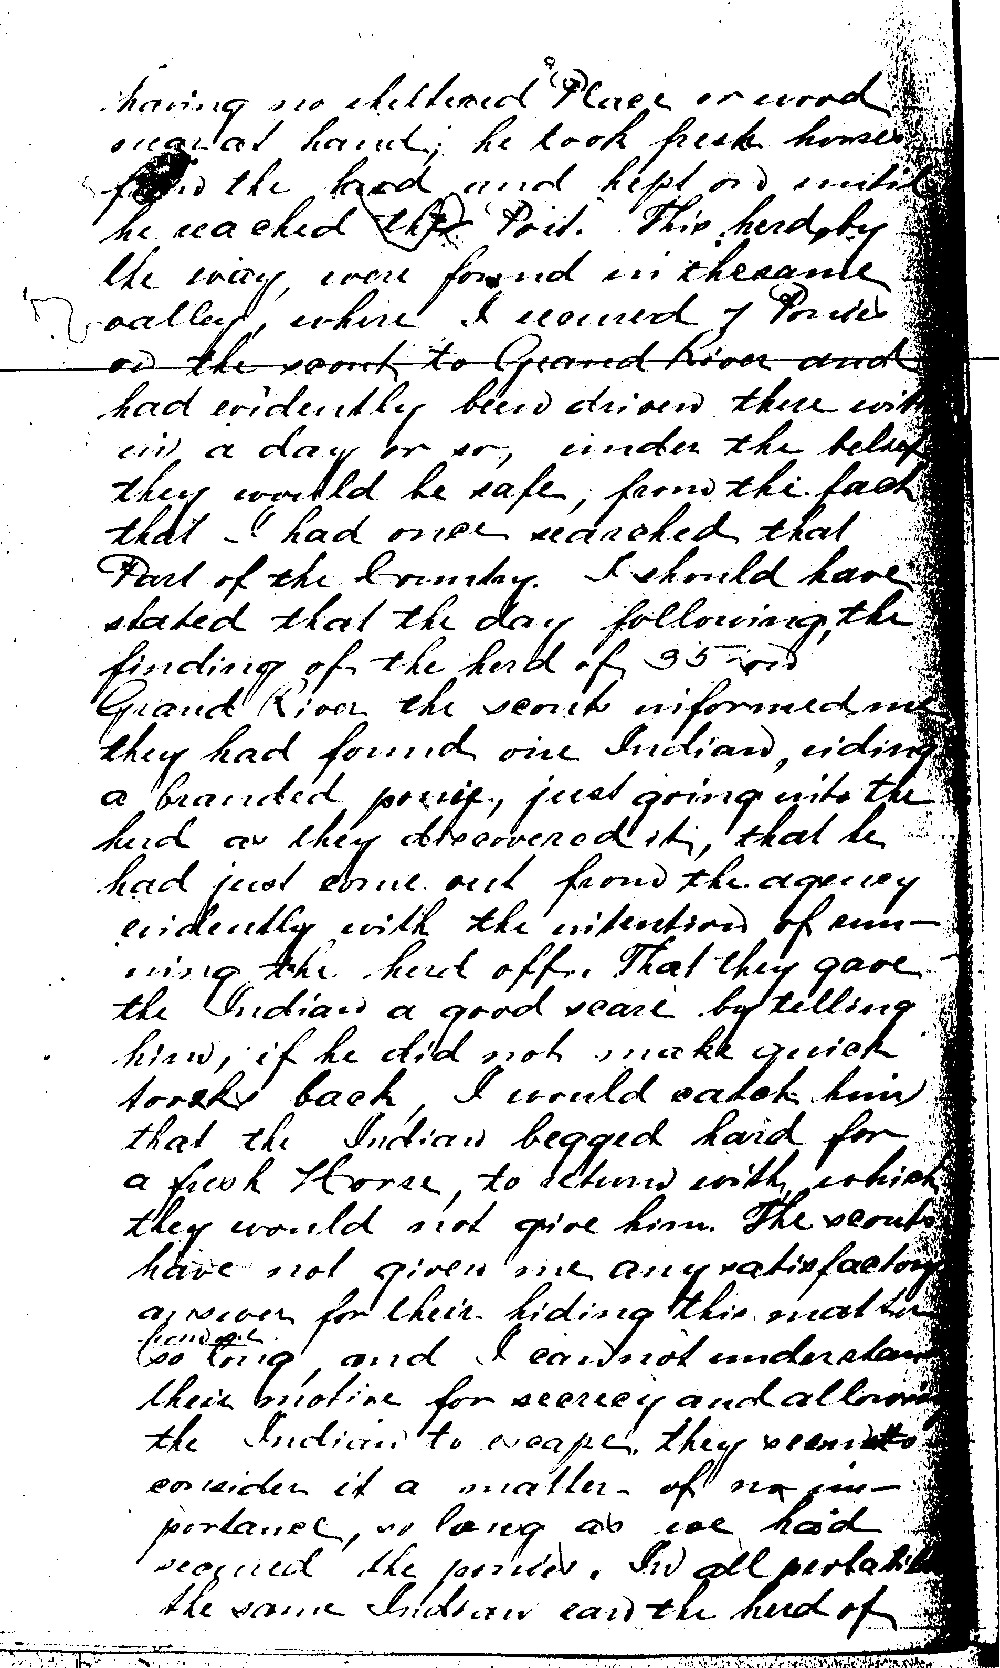 having no sheltered Place or wood
near at hand; he took fresh horses
from the herd and kept on until
he reached the Post. This herd, by
the way, were found in the same
valley, where I secured 7 Ponies
on the scout to Grand River and
had evidently been driven there with
in a day or so, under the belief
they would be safe, from the fact
that I had once searched that
Part of the Country. I should have
stated that the day following, the
finding of the herd of 35 on
Grand River the scouts informed me
they had found one Indian, riding
a branded ponie, just going into the
herd as they discovered it, that he
had just come out from the agency
evidently with the intention of run-
ning the herd off. That they gave
the Indian a good scare by telling
him, if he did not make quick
tracks back, I would catch him
that the Indian begged hard for
a fresh Horse, to return with, which
they would not give him. The scouts
have not given me any satisfactory
answer for their hiding this matter
from me
so long, and I cannot understand
their motive for secrecy and allowing
the Indian to escape. they seem to
consider it a matter of no im-
portance, so long as we had
secured the ponies. In all
the same Indian the herd of